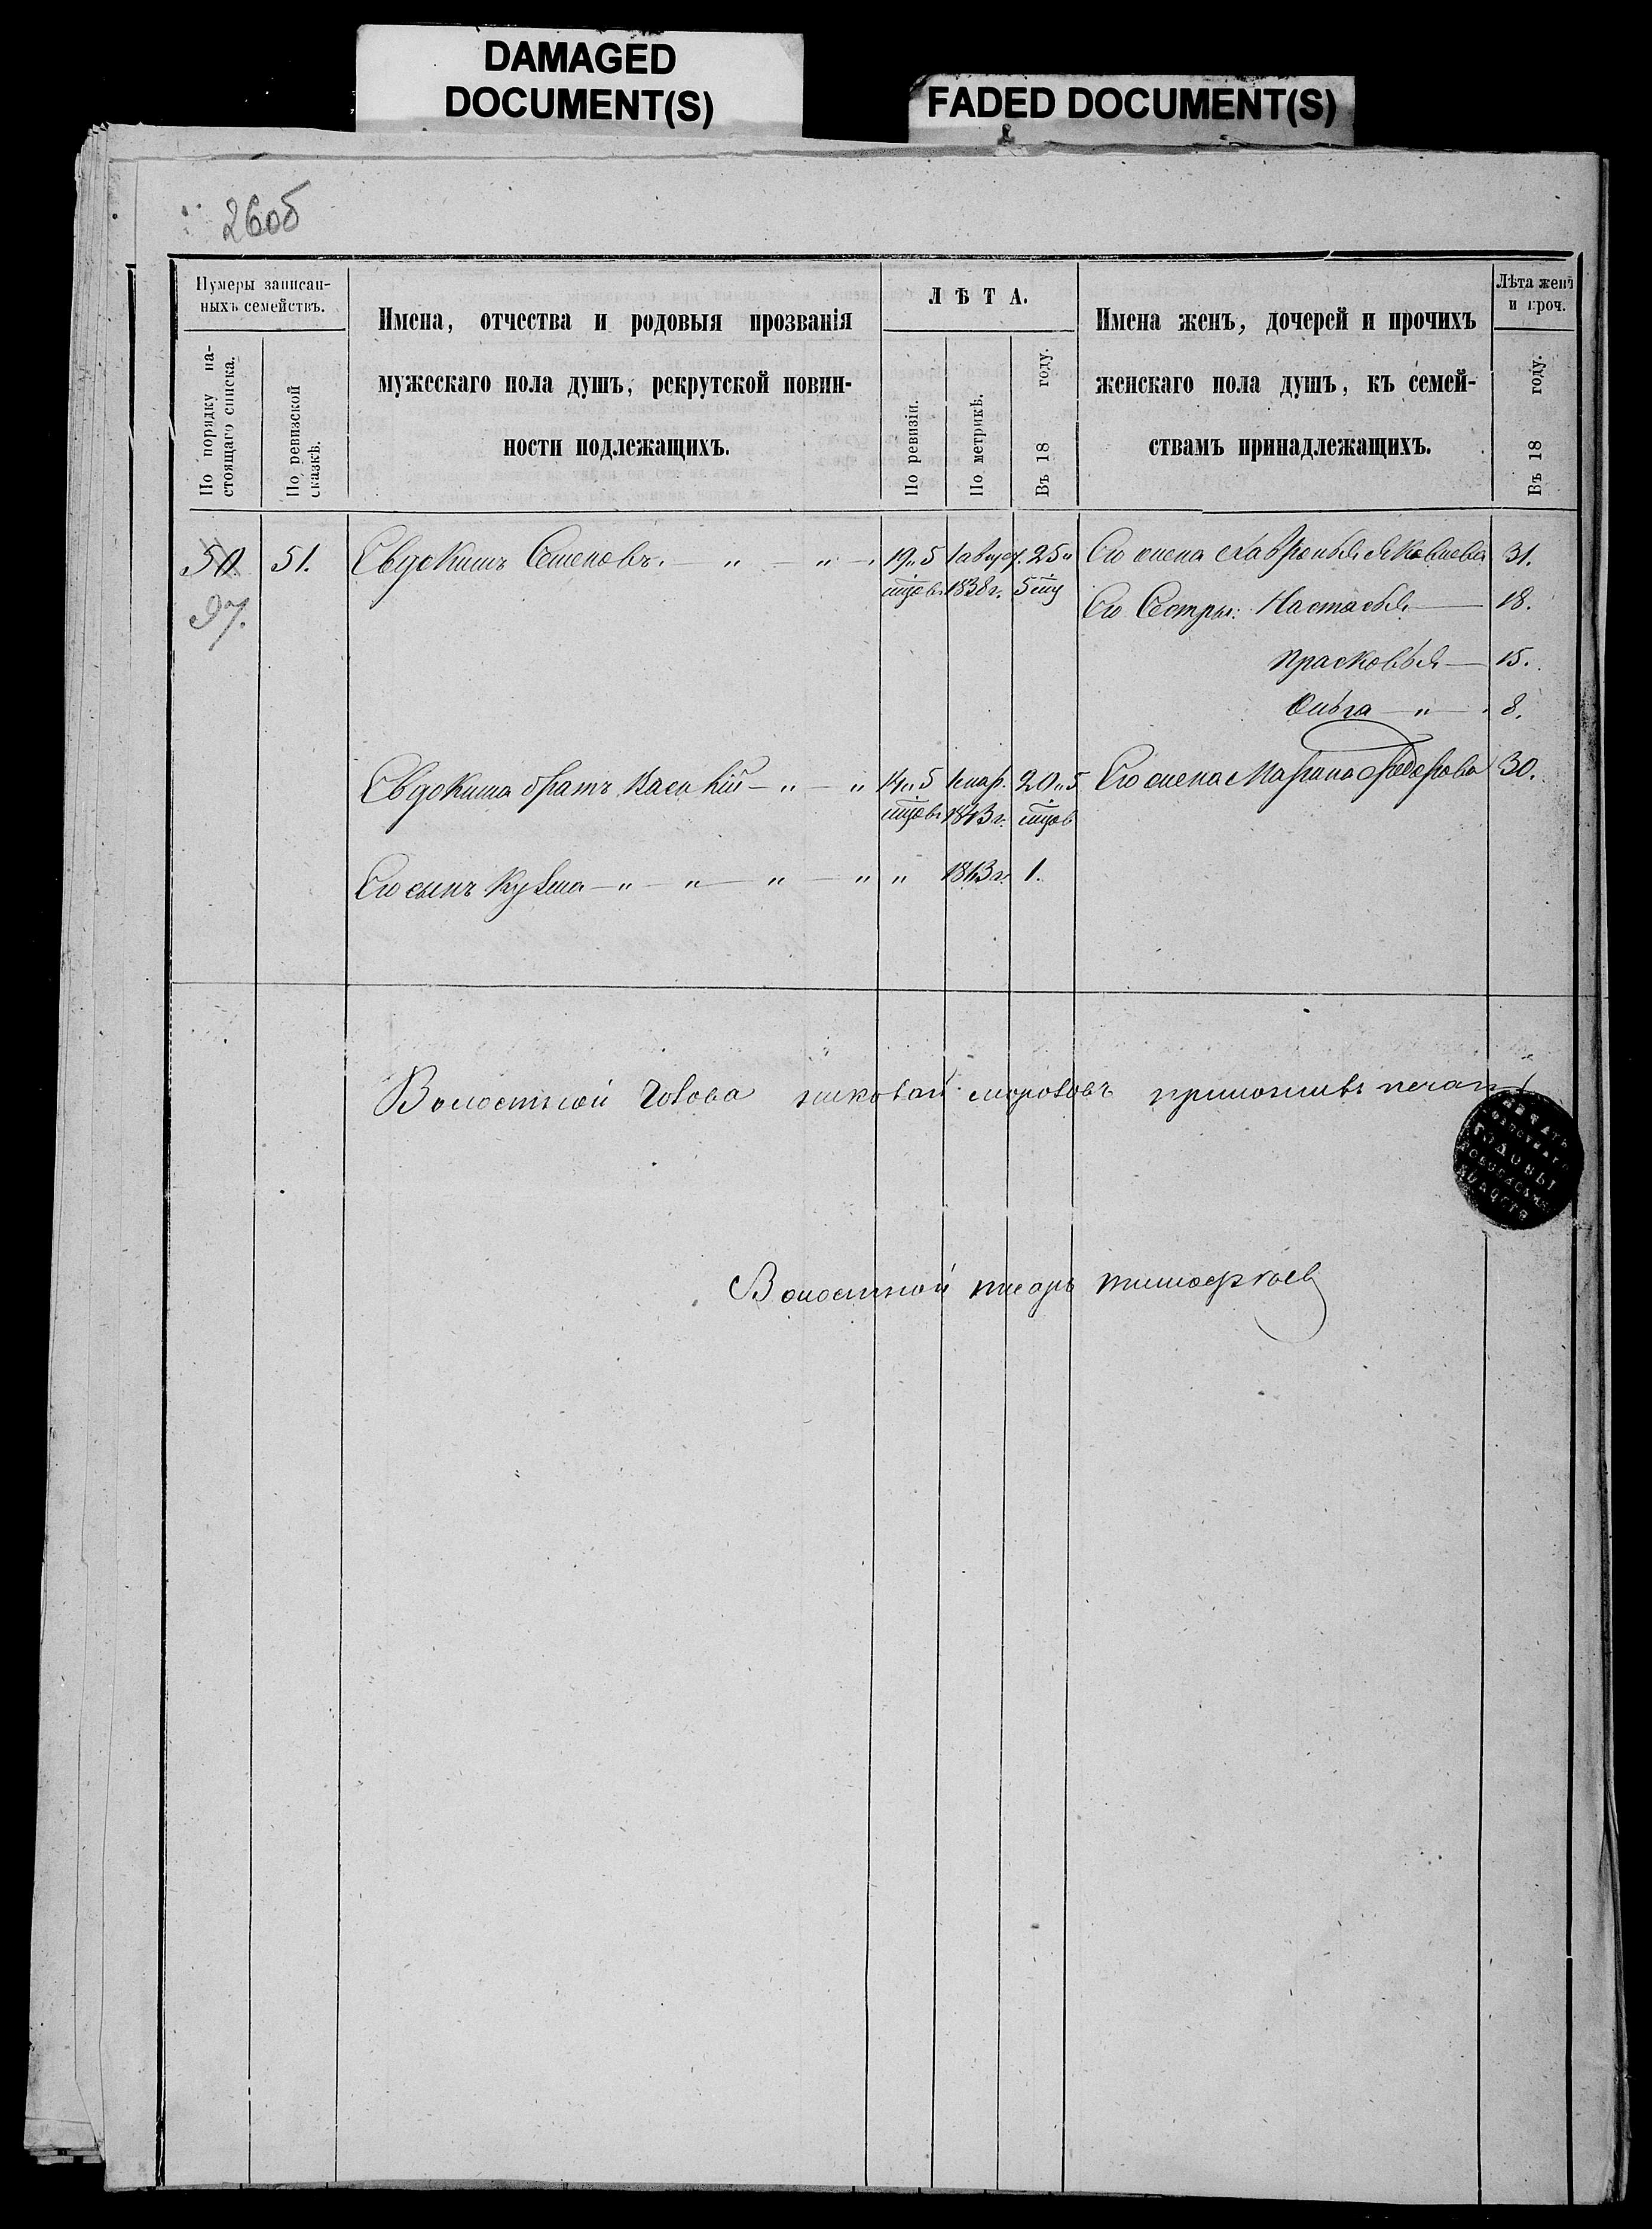 DAMAGED
DOCUMENT(S)
FADED DOCUMENT(S)
260б
Нумеры записан-
ныхъ семействъ.
По порядку на-
стоящаго списка.
По ревизской
сказкѣ.
Имена, отчества и родовыя прозванія
мужескаго пола душъ, рекрутской повин-
ности подлежащихъ.
ЛѢТА.
По ревизіи.
По метрикѣ.
Въ 18 году.
Имена женъ, дочерей и прочихъ
женскаго пола душъ, къ семей-
ствамъ принадлежащихъ.
Лѣта женъ
и проч.
Въ 18 году.
50. 51. Евдокимъ Семеновъ. — " — " — 19 " 5 1 август. 25 " Его жена Хавронья Яковлева 31.
97. мцов 1838 г. 5 мц Его Сестры: Настасья — 18.
Прасковья — 15.
Ольга — " — 8.
Евдокима братъ Василій — " — " 14 " 5 1843 г. 20 " 5 Его жена Марина Федорова 30.
мцов мцов
Его сынъ Кузма — " — " — " — " " 1863 г. 1.
Волостной Голова Морозовъ приложилъ печать
ПЕЧАТЬ
ВОЛОСТНАГО
ГОЛОВЫ
Волостной писарь Тимофеев